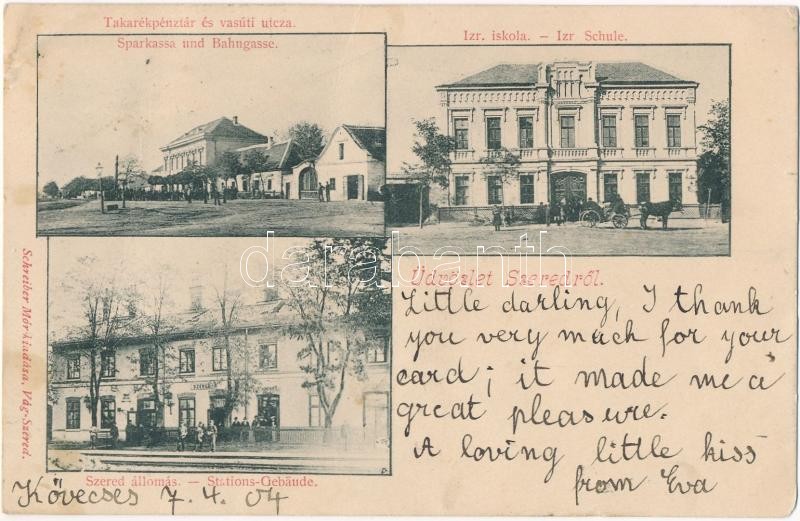 Takarékpénztár és vasúti utcza.
Sparkassa und Bahngasse.
Izr. iskola. – Izr Schule.
Üdvözlet Szeredről.
Little darling, I thank
you very much for your
card; it made me a
great pleasure.
A loving little kiss
from Eva
SZERED
Szered állomás. – Stations-Gebäude.
Kövecses 7. 4. 04
Schreiber Mór kiadása, Vág-Szered.
darabanth